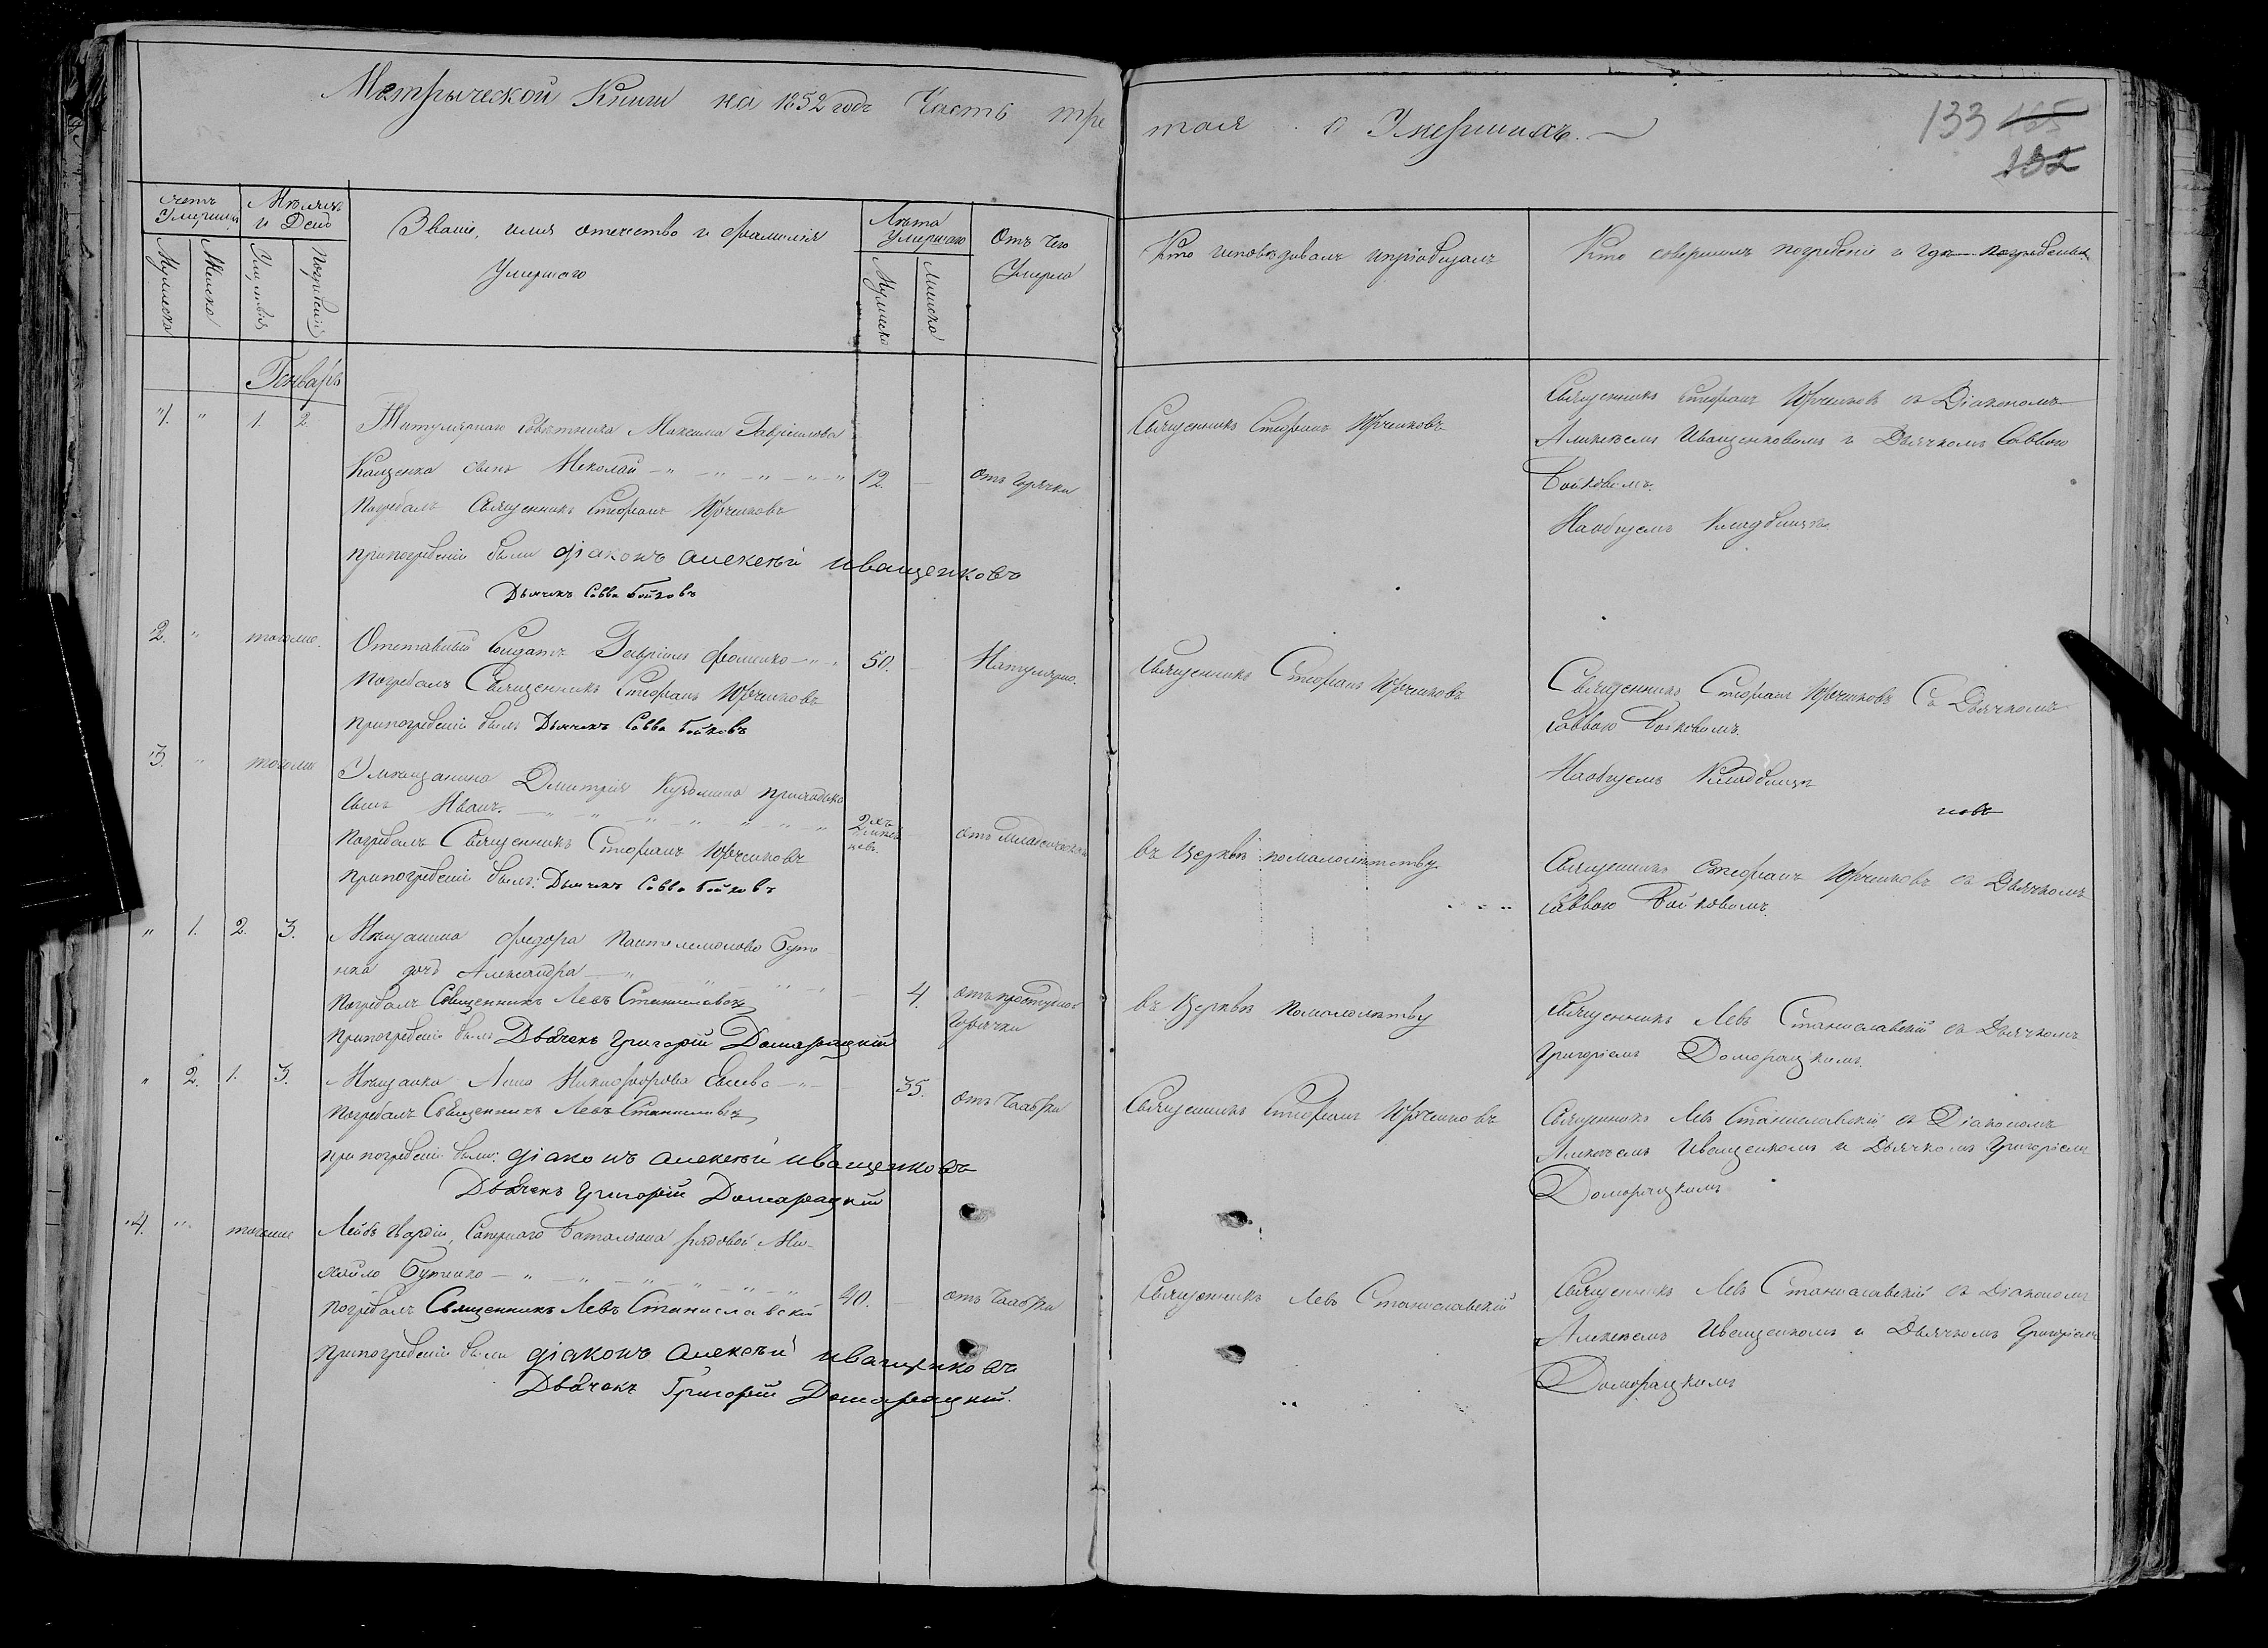 Метрической Книги на 1852 годъ Часть тре
тая о Умершихъ.
133 165
132
Счетъ Умершихъ
Мужеска
Женска
Мѣсяцъ и День
Умертвія
Погребенія
Званіе, имя отечество и фамилія
Умершаго
Лѣта Умершаго
Мужеска
Женска
Отъ чего
Умерло
Кто исповѣдывалъ ипріобщалъ
Кто совершилъ погребеніе и гдѣ погребены
Генварь
1. " 1. 2.
Титулярнаго совѣтника Максима Гавріилова
Кащенка сынъ Николай
12.
отъ горячки
Погребалъ Священникъ Стефанъ Юрченковъ
Припогребеніи были діаконъ алексѣй иващенковъ
Дьячекъ Савва Бойковъ
Священникъ Стефанъ Юрченковъ
Священникъ Стефанъ Юрченковъ съ Діакономъ
Алексѣемъ Иващенковымъ и Дьячкомъ Саввою
Бойковымъ.
Наобщемъ Кладбищѣ.
2. " тогоже.
Отставный Солдатъ Гавріилъ Фоменко
50.
Натурально.
Погребалъ Священникъ Стефанъ Юрченковъ
Припогребеніи былъ Дьячекъ Савва Бойковъ
Священникъ Стефанъ Юрченковъ
Священникъ Стефанъ Юрченковъ Съ Дьячкомъ
Саввою Бойковымъ.
Наобщемъ Кладбищѣ
3. " тогоже
Умѣщанина Дмитрія Кузьмина
сынъ Иванъ.
2хъ
Погребалъ Священникъ Стефанъ Юрченковъ
Припогребеніи былъ: Дьячекъ Савва Бойковъ
въ Церквѣ помалолѣтству
Священникъ Стефанъ Юрченковъ съ Дьячкомъ
Саввою Бойковымъ.
" 1. 2. 3.
Мѣщанина Федора Пантелемонова Буте
нка дочь Александра
4.
отъ простудной
горячки
Погребалъ Священникъ Левъ Станиславскій
Припогребеніи былъ Дьячекъ Григорій Домарацкій
въ Церквѣ помалолѣтству
Священникъ Левъ Станиславскій съ Дьячкомъ
Григоріемъ Доморацкимъ.
" 2. 1. 3.
Мѣщанка Анна Никифорова
35.
отъ Чахотки
Погребалъ Священникъ Левъ Станиславскій
При погребеніи были: діаконъ алексѣй иващенковъ
Дьячекъ Григорій Домарацкій
Священникъ Стефанъ Юрченковъ
Священникъ Левъ Станиславскій съ Діакономъ
Алексѣемъ Иващенкомъ и Дьячкомъ Григоріемъ
Доморацкимъ
4. " тогоже
Лейбъ Гвардіи, Сапернаго Баталіона рядовой Ми-
хайло Бутенко
40.
отъ Чахотки
Погребалъ Священникъ Левъ Станиславскій
Припогребеніи были діаконъ алексѣй иващенковъ
Дьячекъ Григорій Домарацкій.
Священникъ Левъ Станиславскій
Священникъ Левъ Станиславскій съ Діакономъ
Алексѣемъ Иващенкомъ и Дьячкомъ Григоріемъ
Доморацкимъ